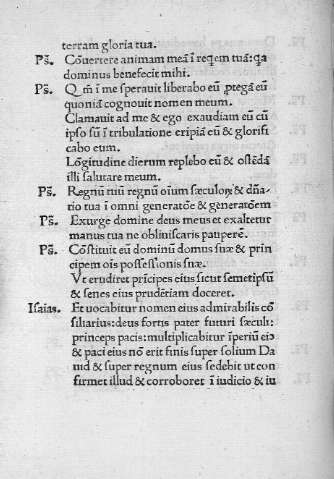 terram gloria tua.
Ps̄. Cōuertere animam meā ī reqem tuā: qa
dominus benefecit mihi.
Ps̄. Qm̄ ī me sperauit liberabo eū ꝓtegā eū
quoniā cognouit nomen meum.
Clamauit ad me & ego exaudiam eū cū
ipso sū ī tribulatione eripiā eū & glorifi
cabo eum.
Lōgitudine dierum replebo eū & ostēdā
illi salutare meum.
Ps̄. Regnū tuū regnū oīum sæculoꝝ & dn̄a
tio tua ī omni generatōe & generatōem
Ps̄. Exurge domine deus meus et exaltetur
manus tua ne obliuiscaris pauperē.
Ps̄. Cōstituit eū dominū domus suæ & prin
cipem oīs possessionis suæ.
Vt erudiret prīcipes eius sicut semetipsū
& senes eius prudētiam doceret.
Isaias. Et uocabitur nomen eius admirabilis cō
siliarius: deus fortis pater futuri sæculi:
princeps pacis: multiplicabitur īperiū eiꝰ
& paci eius nō erit finis super solium Da
uid & super regnum eius sedebit ut con
firmet illud & corroboret ī iudicio & iu